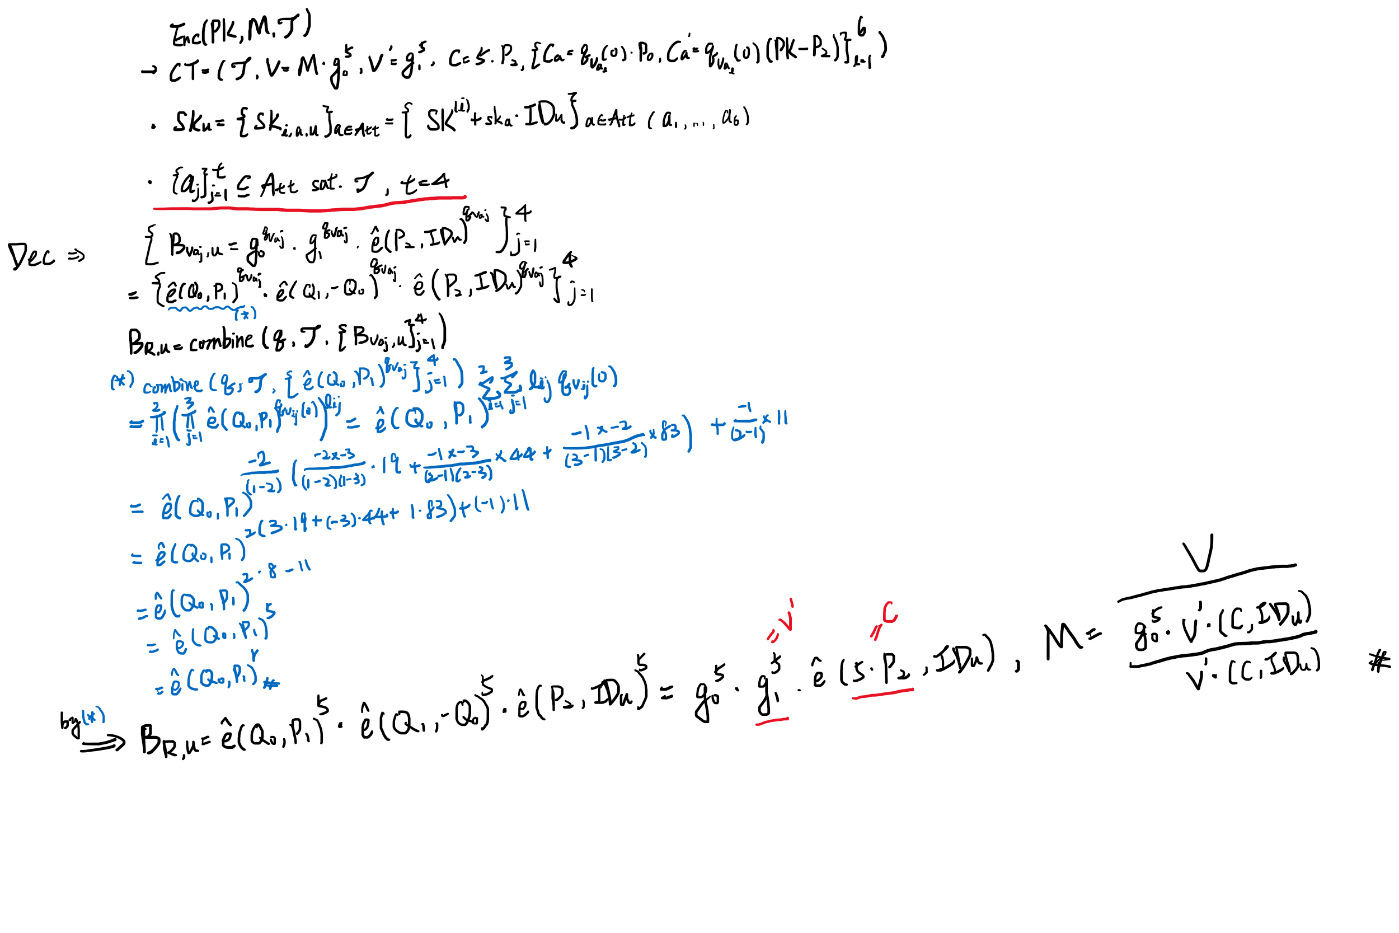 Enc(PK, M, T)
→ CT = (T, V = M · g₀⁵, V' = g₁⁵, C = 5 · P₂, {Ca = q_{va_i}(0) · P₀, Ca' = q_{va_i}(0) (PK − P₂)}_{i=1}^{6})
· SKu = {SK_{i,a,u}}_{a∈Att} = { SK^{(i)} + sk_a · IDu }_{a∈Att} (a₁, ..., a₆)
· {aj}_{j=1}^{t} ⊆ Att sat. T, t = 4
Dec ⇒ { B_{vaj,u} = g₀^{q_{vaj}} · g₁^{q_{vaj}} · ê(P₂, IDu)^{q_{vaj}} }_{j=1}^{4}
= {ê(Q₀, P₁)^{q_{vaj}} · ê(Q₁, −Q₀)^{q_{vaj}} · ê(P₂, IDu)^{q_{vaj}}}_{j=1}^{4}
(*)
B_{R,u} = combine (q, T, {B_{vaj,u}}_{j=1}^{4})
(*) combine (q, T, {ê(Q₀, P₁)^{q_{vaj}}}_{j=1}^{4})
= ∏_{i=1}^{2} (∏_{j=1}^{3} ê(Q₀, P₁)^{q_{vij}(0)})^{lij} = ê(Q₀, P₁)^{∑_{i=1}^{2} ∑_{j=1}^{3} lij q_{vij}(0)}
= ê(Q₀, P₁)^{\frac{-2}{(1-2)} (\frac{-2×-3}{(1-2)(1-3)} · 19 + \frac{-1×-3}{(2-1)(2-3)} × 44 + \frac{-1×-2}{(3-1)(3-2)} × 83) + \frac{-1}{(2-1)} × 11}
= ê(Q₀, P₁)^{2(3·19 + (−3)·44 + 1·83) + (−1)·11}
= ê(Q₀, P₁)^{2·8 − 11}
= ê(Q₀, P₁)⁵
= ê(Q₀, P₁)^r #
by(*) ⟹ B_{R,u} = ê(Q₀, P₁)⁵ · ê(Q₁, −Q₀)⁵ · ê(P₂, IDu)⁵ = g₀⁵ · g₁⁵ · ê(5 · P₂, IDu), M = \frac{V}{\frac{g₀⁵ · V' · (C, IDu)}{V' · (C, IDu)}} #
= V'
= C